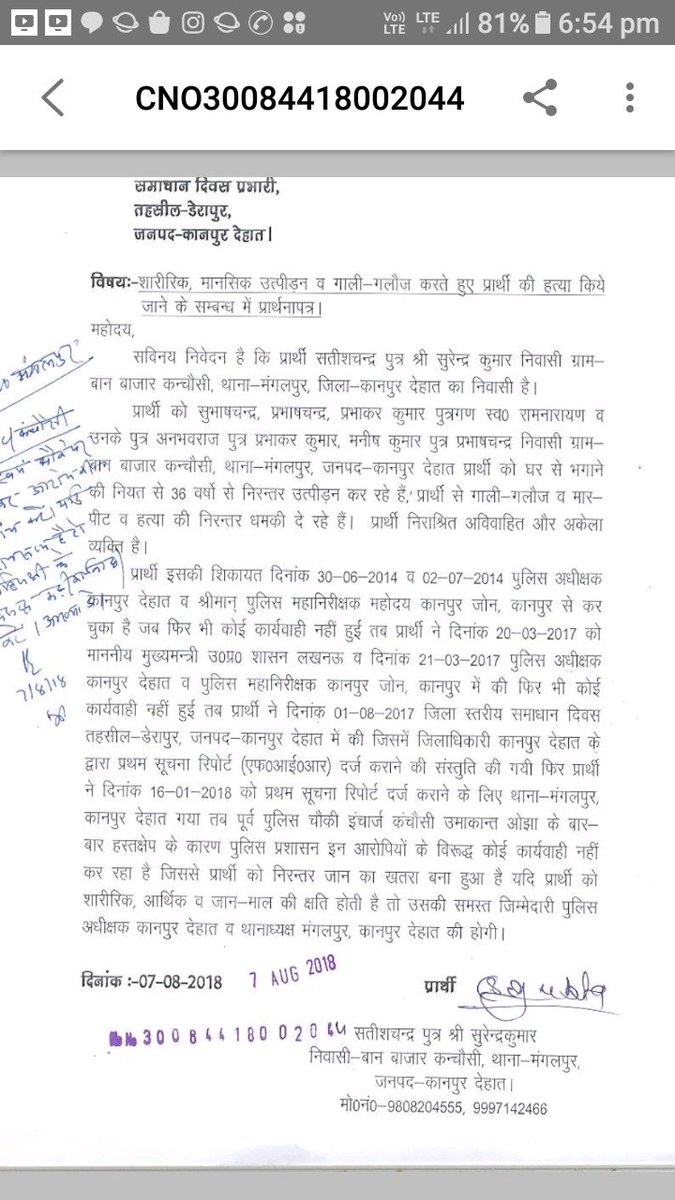 Vo) LTE LTE 81% 6:54 pm
CNO30084418002044
समाधान दिवस प्रभारी,
तहसील-डेरापुर,
जनपद-कानपुर देहात।
विषयः-शारीरिक, मानसिक उत्पीड़न व गाली-गलौज करते हुए प्रार्थी की हत्या किये
जाने के सम्बन्ध में प्रार्थनापत्र।
महोदय,
सविनय निवेदन है कि प्रार्थी सतीशचन्द्र पुत्र श्री सुरेन्द्र कुमार निवासी ग्राम-
बान बाजार कन्चौसी, थाना-मंगलपुर, जिला-कानपुर देहात का निवासी है।
प्रार्थी को सुभाषचन्द्र, प्रभाषचन्द्र, प्रभाकर कुमार पुत्रगण स्व0 रामनारायण व
उनके पुत्र अनभवराज पुत्र प्रभाकर कुमार, मनीष कुमार पुत्र प्रभाषचन्द्र निवासी ग्राम-
बान बाजार कन्चौसी, थाना-मंगलपुर, जनपद-कानपुर देहात प्रार्थी को घर से भगाने
की नियत से 36 वर्षो से निरन्तर उत्पीड़न कर रहे हैं, प्रार्थी से गाली-गलौज व मार-
पीट व हत्या की निरन्तर धमकी दे रहे हैं। प्रार्थी निराश्रित अविवाहित और अकेला
व्यक्ति है।
प्रार्थी इसकी शिकायत दिनांक 30-06-2014 व 02-07-2014 पुलिस अधीक्षक
कानपुर देहात व श्रीमान् पुलिस महानिरीक्षक महोदय कानपुर जोन, कानपुर से कर
चुका है जब फिर भी कोई कार्यवाही नहीं हुई तब प्रार्थी ने दिनांक 20-03-2017 को
माननीय मुख्यमन्त्री उ0प्र0 शासन लखनऊ व दिनांक 21-03-2017 पुलिस अधीक्षक
कानपुर देहात व पुलिस महानिरीक्षक कानपुर जोन, कानपुर में की फिर भी कोई
कार्यवाही नहीं हुई तब प्रार्थी ने दिनांक 01-08-2017 जिला स्तरीय समाधान दिवस
तहसील-डेरापुर, जनपद-कानपुर देहात में की जिसमें जिलाधिकारी कानपुर देहात के
द्वारा प्रथम सूचना रिपोर्ट (एफ0आई0आर) दर्ज कराने की संस्तुति की गयी फिर प्रार्थी
ने दिनांक 16-01-2018 को प्रथम सूचना रिपोर्ट दर्ज कराने के लिए थाना-मंगलपुर,
कानपुर देहात गया तब पूर्व पुलिस चौकी इंचार्ज कंचौसी उमाकान्त ओझा के बार-
बार हस्तक्षेप के कारण पुलिस प्रशासन इन आरोपियों के विरूद्ध कोई कार्यवाही नहीं
कर रहा है जिससे प्रार्थी को निरन्तर जान का खतरा बना हुआ है यदि प्रार्थी को
शारीरिक, आर्थिक व जान-माल की क्षति होती है तो उसकी समस्त जिम्मेदारी पुलिस
अधीक्षक कानपुर देहात व थानाध्यक्ष मंगलपुर, कानपुर देहात की होगी।
7/8/18
दिनांक :-07-08-2018 7 AUG 2018 प्रार्थी
30084418002044 सतीशचन्द्र पुत्र श्री सुरेन्द्रकुमार
निवासी-बान बाजार कन्चौसी, थाना-मंगलपुर,
जनपद-कानपुर देहात।
मो0नं0-9808204555, 9997142466